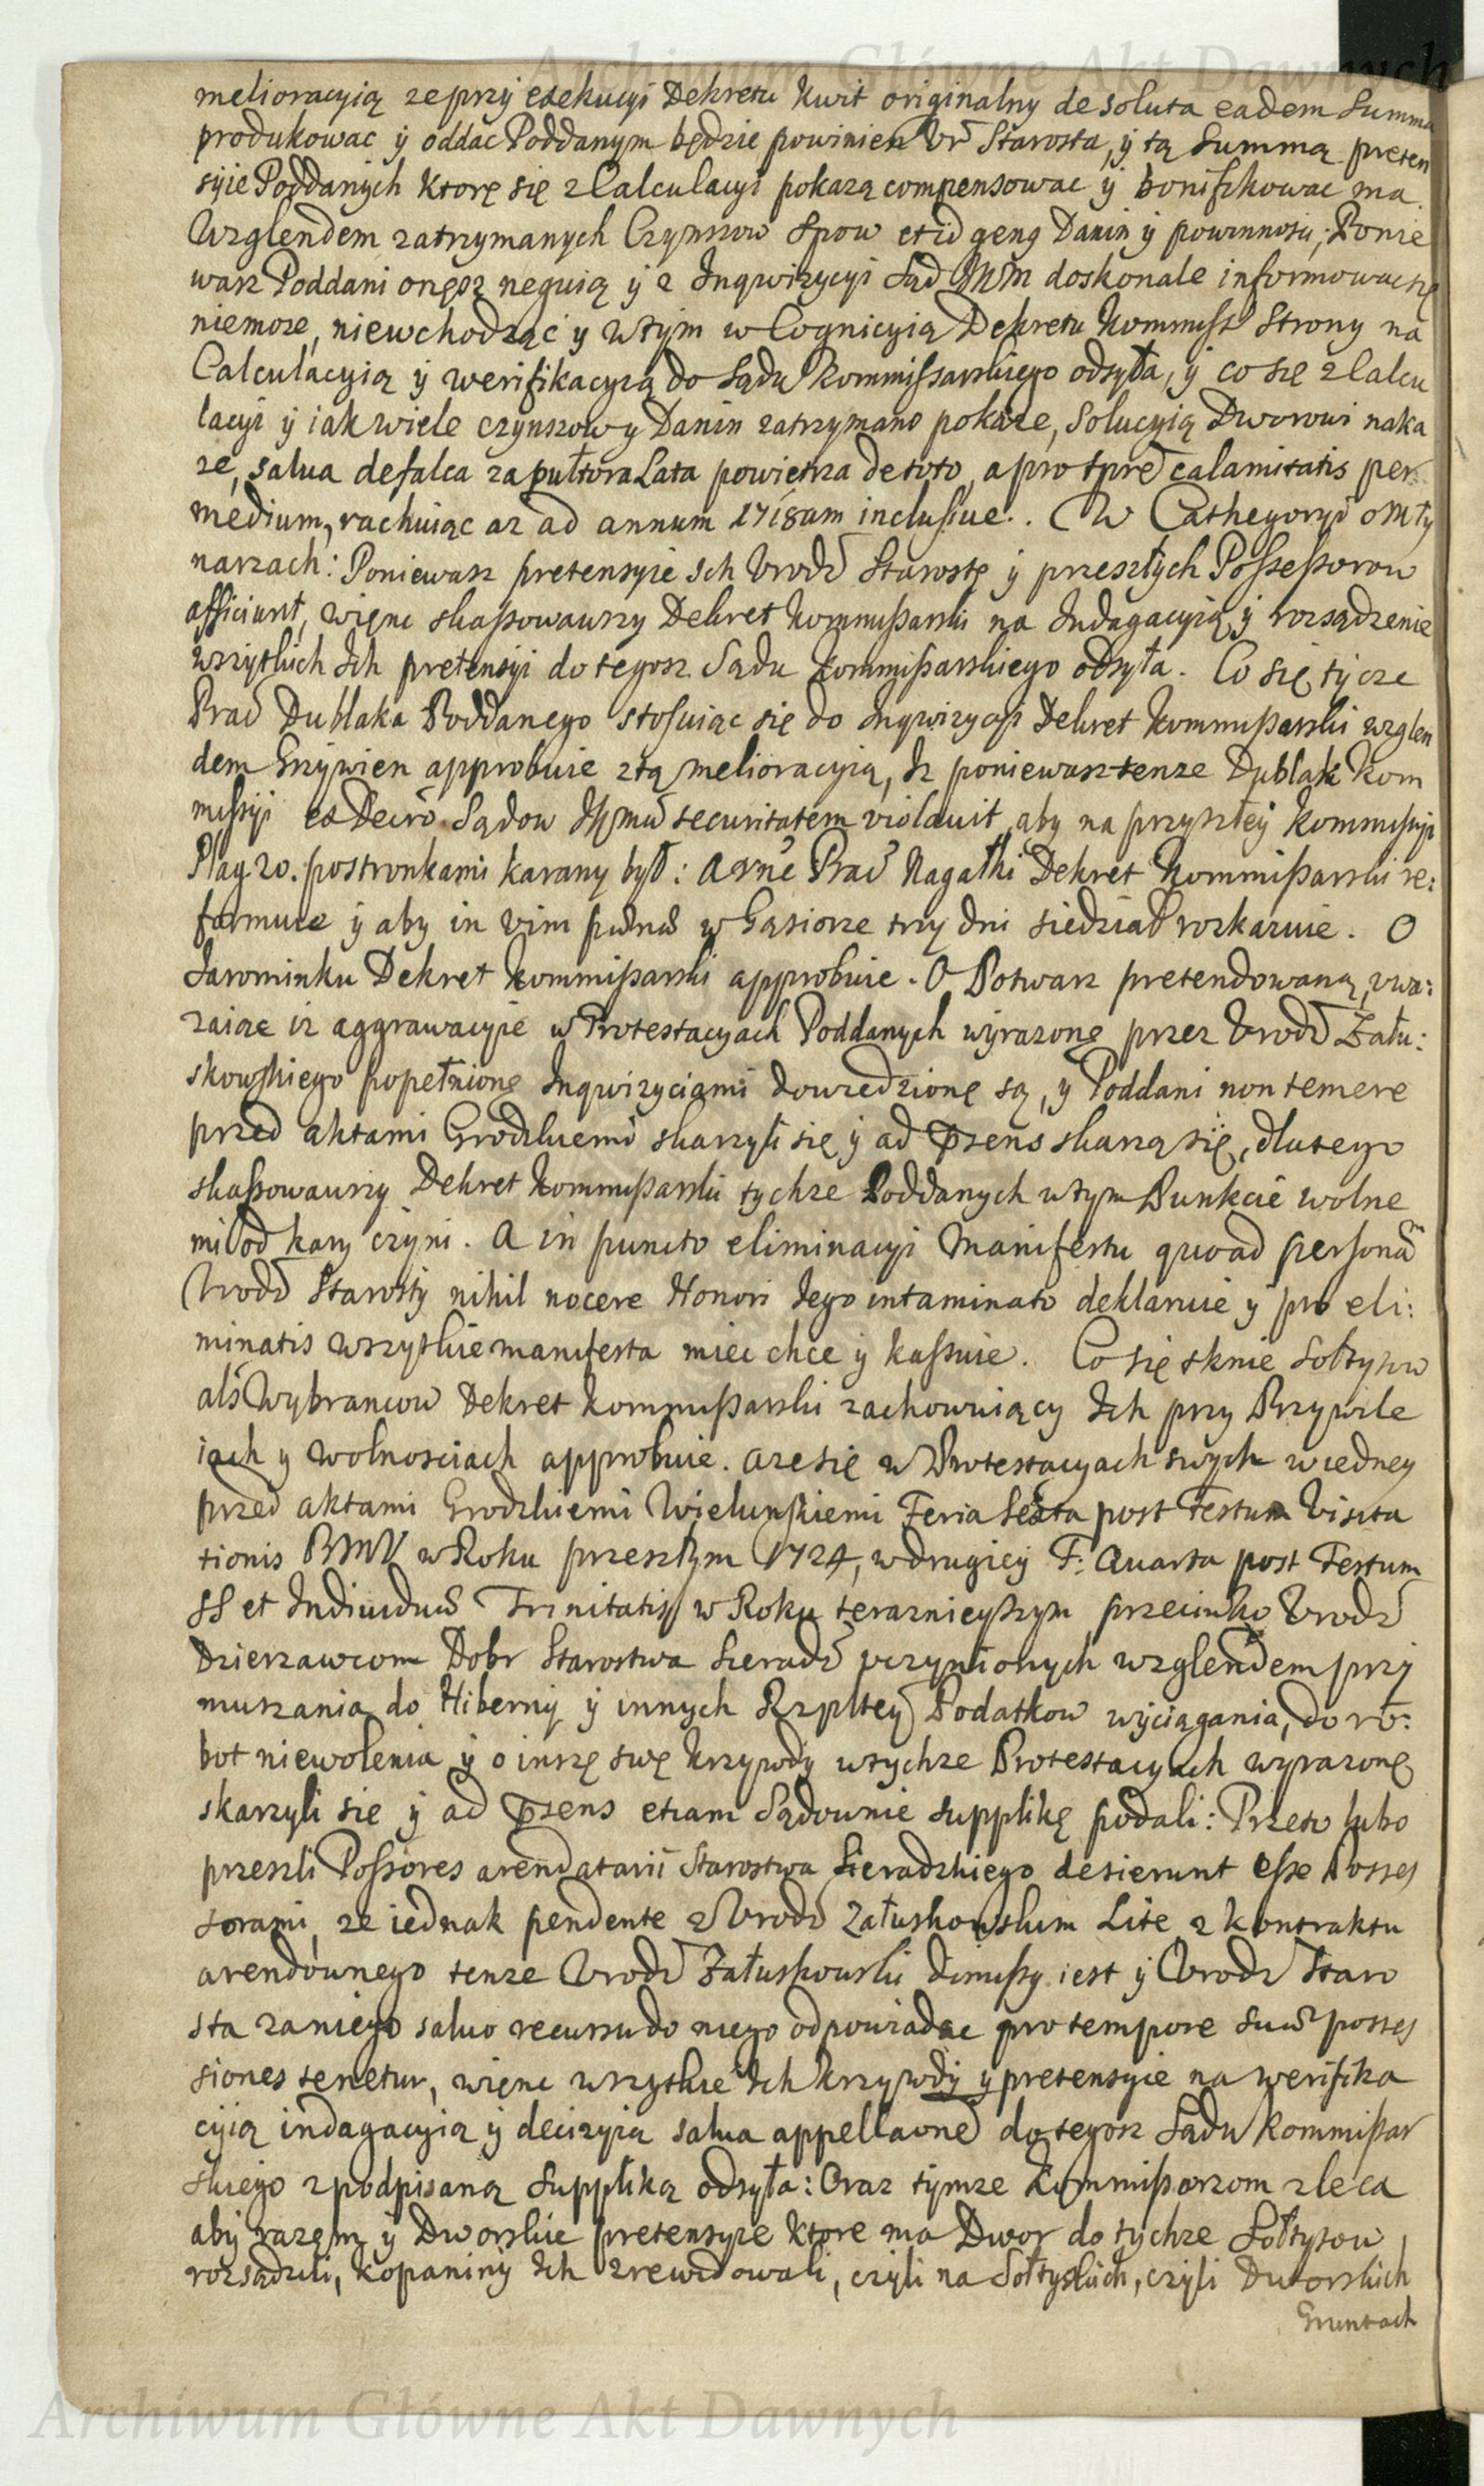 Archiwum Główne Akt Dawnych
melioracyią ze przy exekucyi Dekretu Kwit originalny de soluta eadem Summa
produkowac y oddac Poddanym będzie powinien Ur Starosta, y tą Summą preten
syie Poddanych ktorę się z Calculacyi pokazą compensowac y bonifikowac ma.
Wzglendem zatrzymanych Czynszow Spow et id geng Danin y powinnosci, Ponie
wasz Poddani onęsz neguią y z Inqwizycyi Sąd JKM doskonale informowac się
niemoze, niewchodząc y wtym w Cognicyią Dekretu Kommiss Strony na
Calculacyią y werifikacyią do Sądu Kommissarskiego odsyła, y co się z Calcu
lacyi y iak wiele czynszow y Danin zatrzymano pokaze, Solucyią Dworowi naka
ze, salua defalca za pułtora Lata powietrza de toto, a pro tpre calamitatis per
medium, rachuiąc az ad annum 1718am inclusiue. W Cathegoryi o Mły
narzach: Poniewasz pretensyie Ich Urodz Starostę y przeszłych Possessorow
afficiunt, więnc skassowawszy Dekret Kommissarski na Indagacyią y rozsądzenie
wszytkich Ich pretensyi do tegosz Sądu Kommissarskiego odsyła. Co się tycze
Prac Dublaka Poddanego stosuiąc się do Inqwizycyi Dekret Kommissarski wzglen
dem Grzywien approbuie z tą melioracyią, Iz poniewasz tenze Dublak Kom
missyi ex Decro Sądow JKMci securitatem violauit, aby na przyszłey Kommissyi
Plag 20. postronkami karany był: Azne Prac Nagałki Dekret Kommissarski re:
formuie y aby in vim w Gąsiorze trzy dni siedział rozkazuie. O
Jarominku Dekret Kommissarski approbuie. O Potwarz pretendowaną, uwa:
zaiąc iz aggrawacyie w Protestacyach Poddanych wyrazonę przez Urodz Zału:
skowskiego popełnionę Inqwizyciami dowiedzionę są, y Poddani non temere
przed aktami Grodzkiemi skarzyli się y ad psens skarzą się, dlatego
skassowawszy Dekret Kommissarski tychze Poddanych wtym Punkcie wolne
mi od kary czyni. A in puncto eliminacyi Manifestu quoad personam
Urodz Starosty nihil nocere Honori Iego intaminato deklaruie y pro eli:
minatis wszytkie manifesta miec chce y kassuie. Co się tknie Sołtysow
als Wybrancow Dekret Kommissarski zachowuiący Ich przy Przywile
iach y wolnosciach approbuie. A ze się w Protestacyach swych w iedney
przed aktami Grodzkiemi Wielunskiemi Feria Sexta post Festum Visita
tionis BMV w Roku przeszłym 1724, w drugiey F. Quarta post Festum
SS et Indiuiduae Trinitatis w Roku teraznieyszym przeciwko Urodz
Dzierzawcom Dobr Starostwa Sieradz uczynionych wzglendem przy
muszania do Hiberny y innych Rzpltey Podatkow wyciągania, do ro:
bot niewolenia y o inszę swę krzywdy w tychze Protestacyach wyrazonę
skarzyli się y ad psens etiam Sądownie supplikę podali: Przeto lubo
przeszli Possores arendatarii Starostwa Sieradzkiego desierunt esse Posses
sorami, ze iednak pendente z Urodz Załuskowskim Lite, z kontraktu
arendownego tenze Urodz Załuskowski dimissy iest y Urodz Staro
sta za niego saluo recursu do niego odpowiadac pro tempore suae posses
siones tenetur, więnc wszytkie Ich krzywdy y pretensyie na werifika
cyią indagacyią y decizyią salua appellaone do tegosz Sądu Kommissar
skiego z podpisaną Suppliką odsyła: Oraz tymze Kommissarzom zleca
aby razem y Dworskie pretensyie ktore ma Dwor do tychze Sołtysow
rozsądzili, kopaniny Ich zrewidowali, czyli na Sołtyskich, czyli Dworskich
Gruntach
Archiwum Główne Akt Dawnych